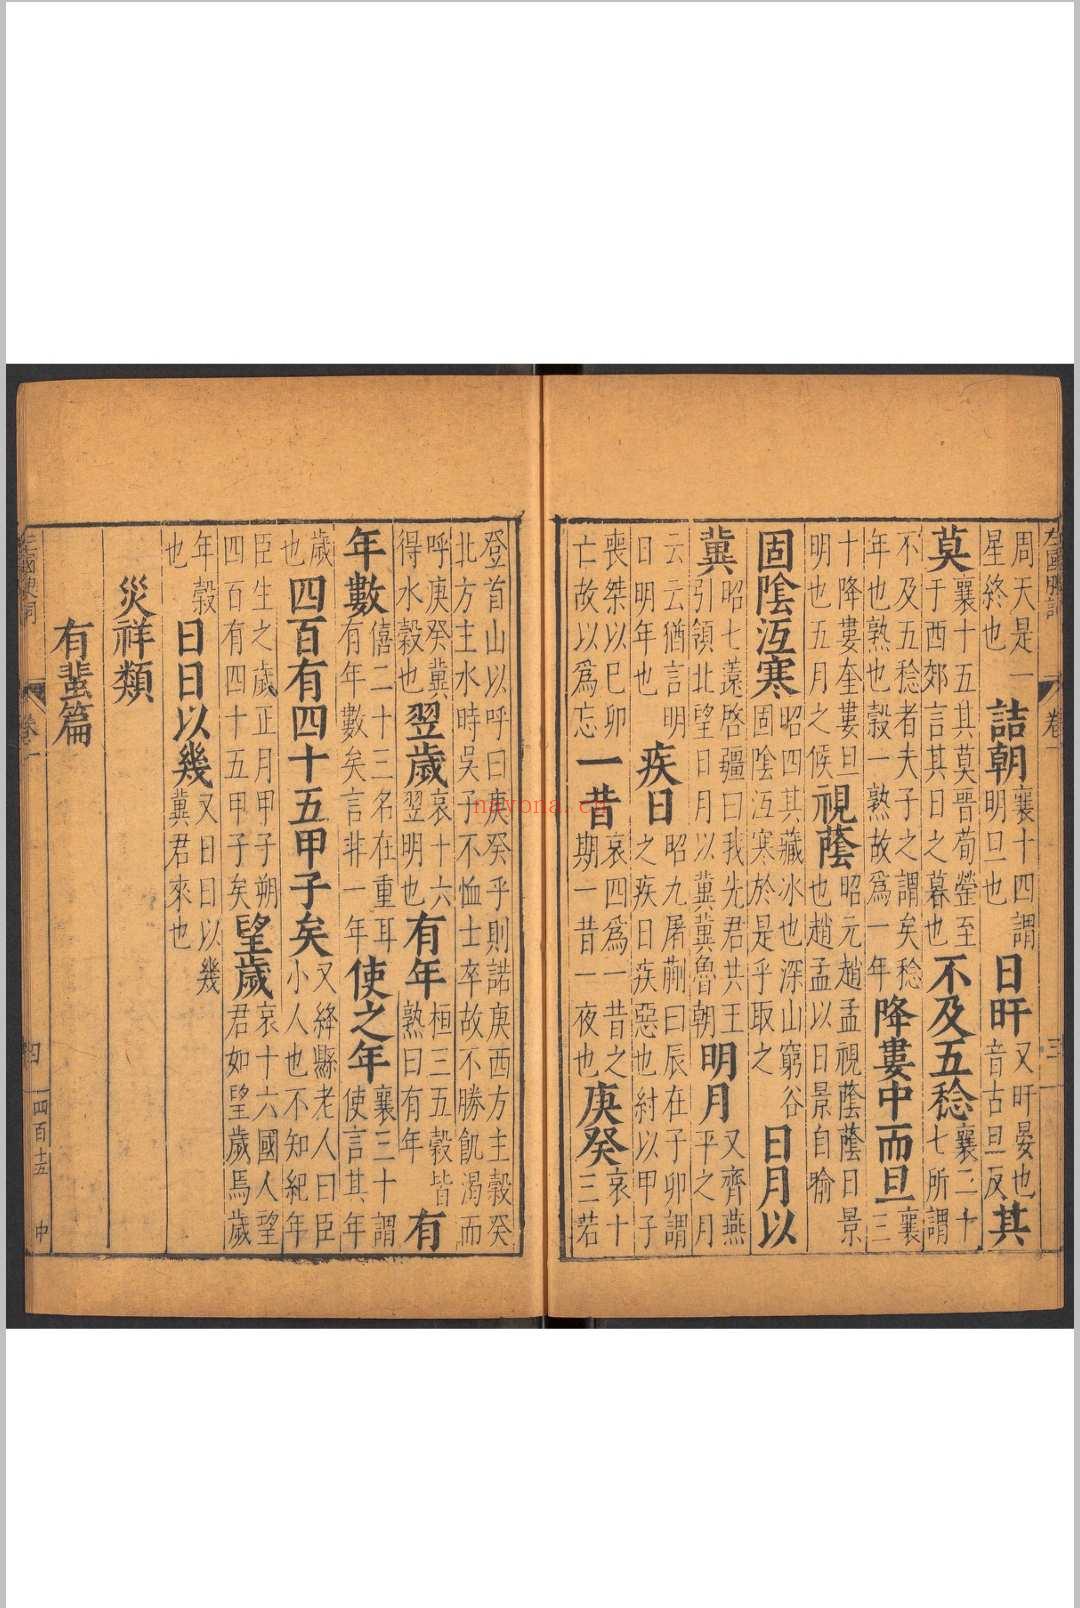 左國腴詞 卷一 三
周天是一星終也詰朝襄十四謂明旦也日旰又旰晏也音古旦反其
莫襄十五其莫晉荀罃至于西郊言其日之暮也不及五稔襄二十七所謂
不及五稔者夫子之謂矣稔年也熟也穀一熟故爲一年降婁中而旦襄三
十降婁奎婁旦明也五月之候視蔭昭元趙孟視蔭蔭日景也趙孟以日景自喻
固陰沍寒昭四其藏冰也深山窮谷固陰沍寒於是乎取之日月以
冀昭七薳啓疆曰我先君共王引領北望日月以冀冀魯朝明月又齊燕平之月
云云猶言明日明年也疾日昭九屠蒯曰辰在子卯謂之疾日疾惡也紂以甲子
喪桀以巳卯亡故以爲忘一昔哀四爲一昔之期一昔一夜也庚癸哀十三若
登首山以呼曰庚癸乎則諾庚西方主穀癸北方主水時吳子不恤士卒故不勝飢渴而
呼庚癸冀得水穀也翌歲哀十六翌明也有年桓三五穀皆熟曰有年有
年數僖二十三名在重耳有年數矣言非一年使之年襄三十謂使言其年
歲也四百有四十五甲子矣又絳縣老人曰臣小人也不知紀年
臣生之歲正月甲子朔四百有四十五甲子矣望歲哀十六國人望君如望歲焉歲
年穀也日日以幾又日日以幾冀君來也
災祥類
有蜚篇
卷一 四 四百十五 中
nayona.cn